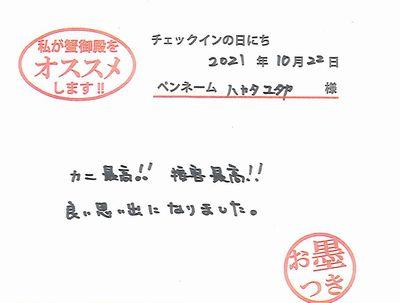 私が蟹御殿を
オススメ
します!!
チェックインの日にち
2021 年 10月 22 日
ペンネーム ハヤタ ユタヤ 様
カニ 最高!! 接客最高!!
良い思い出になりました。
お墨
つき